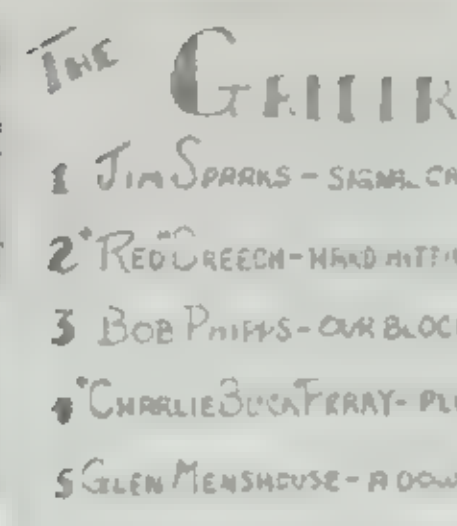 The
1 Jim Sparks - signal ca
2 "Red" Creech - hard hitti
3 Bob Phipps - our bloc
"Charlie Buck Ferray - pl
5 Glen Menshouse - a dow